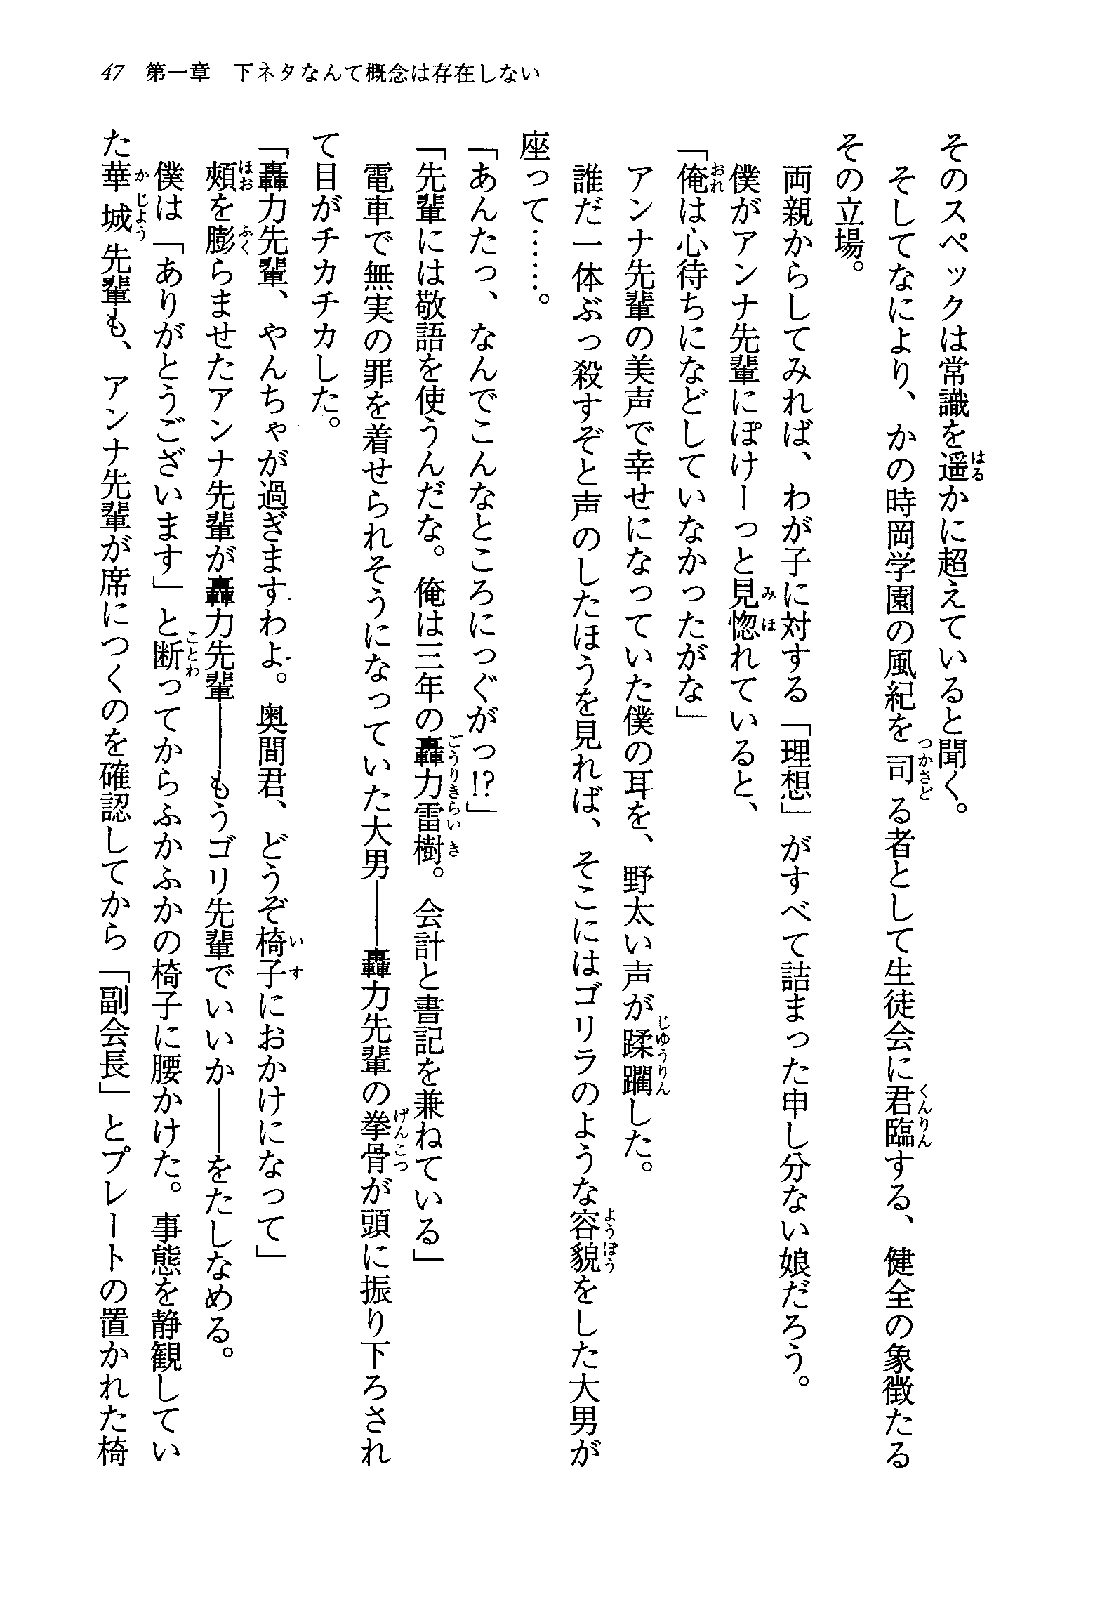 47 第一章 下ネタなんて概念は存在しない
そのスペックは常識を遥かに超えていると聞く。
そしてなにより、かの時岡学園の風紀を司る者として生徒会に君臨する、健全の象徴たる
その立場。
両親からしてみれば、わが子に対する「理想」がすべて詰まった申し分ない娘だろう。
僕がアンナ先輩にぽけーっと見惚れていると、
「俺は心待ちになどしていなかったがな」
アンナ先輩の美声で幸せになっていた僕の耳を、野太い声が蹂躙した。
誰だ一体ぶっ殺すぞと声のしたほうを見れば、そこにはゴリラのような容貌をした大男が
座って……。
「あんたっ、なんでこんなところにっぐがっ!?」
「先輩には敬語を使うんだな。俺は三年の轟力雷樹。会計と書記を兼ねている」
電車で無実の罪を着せられそうになっていた大男――轟力先輩の拳骨が頭に振り下ろされ
て目がチカチカした。
「轟力先輩、やんちゃが過ぎますわよ。奥間君、どうぞ椅子におかけになって」
頬を膨らませたアンナ先輩が轟力先輩――もうゴリ先輩でいいか――をたしなめる。
僕は「ありがとうございます」と断ってからふかふかの椅子に腰かけた。事態を静観してい
た華城先輩も、アンナ先輩が席につくのを確認してから「副会長」とプレートの置かれた椅